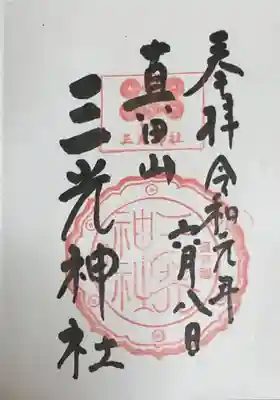 奉拝 令和元年六月八日
真田山
三光神社
三光神社